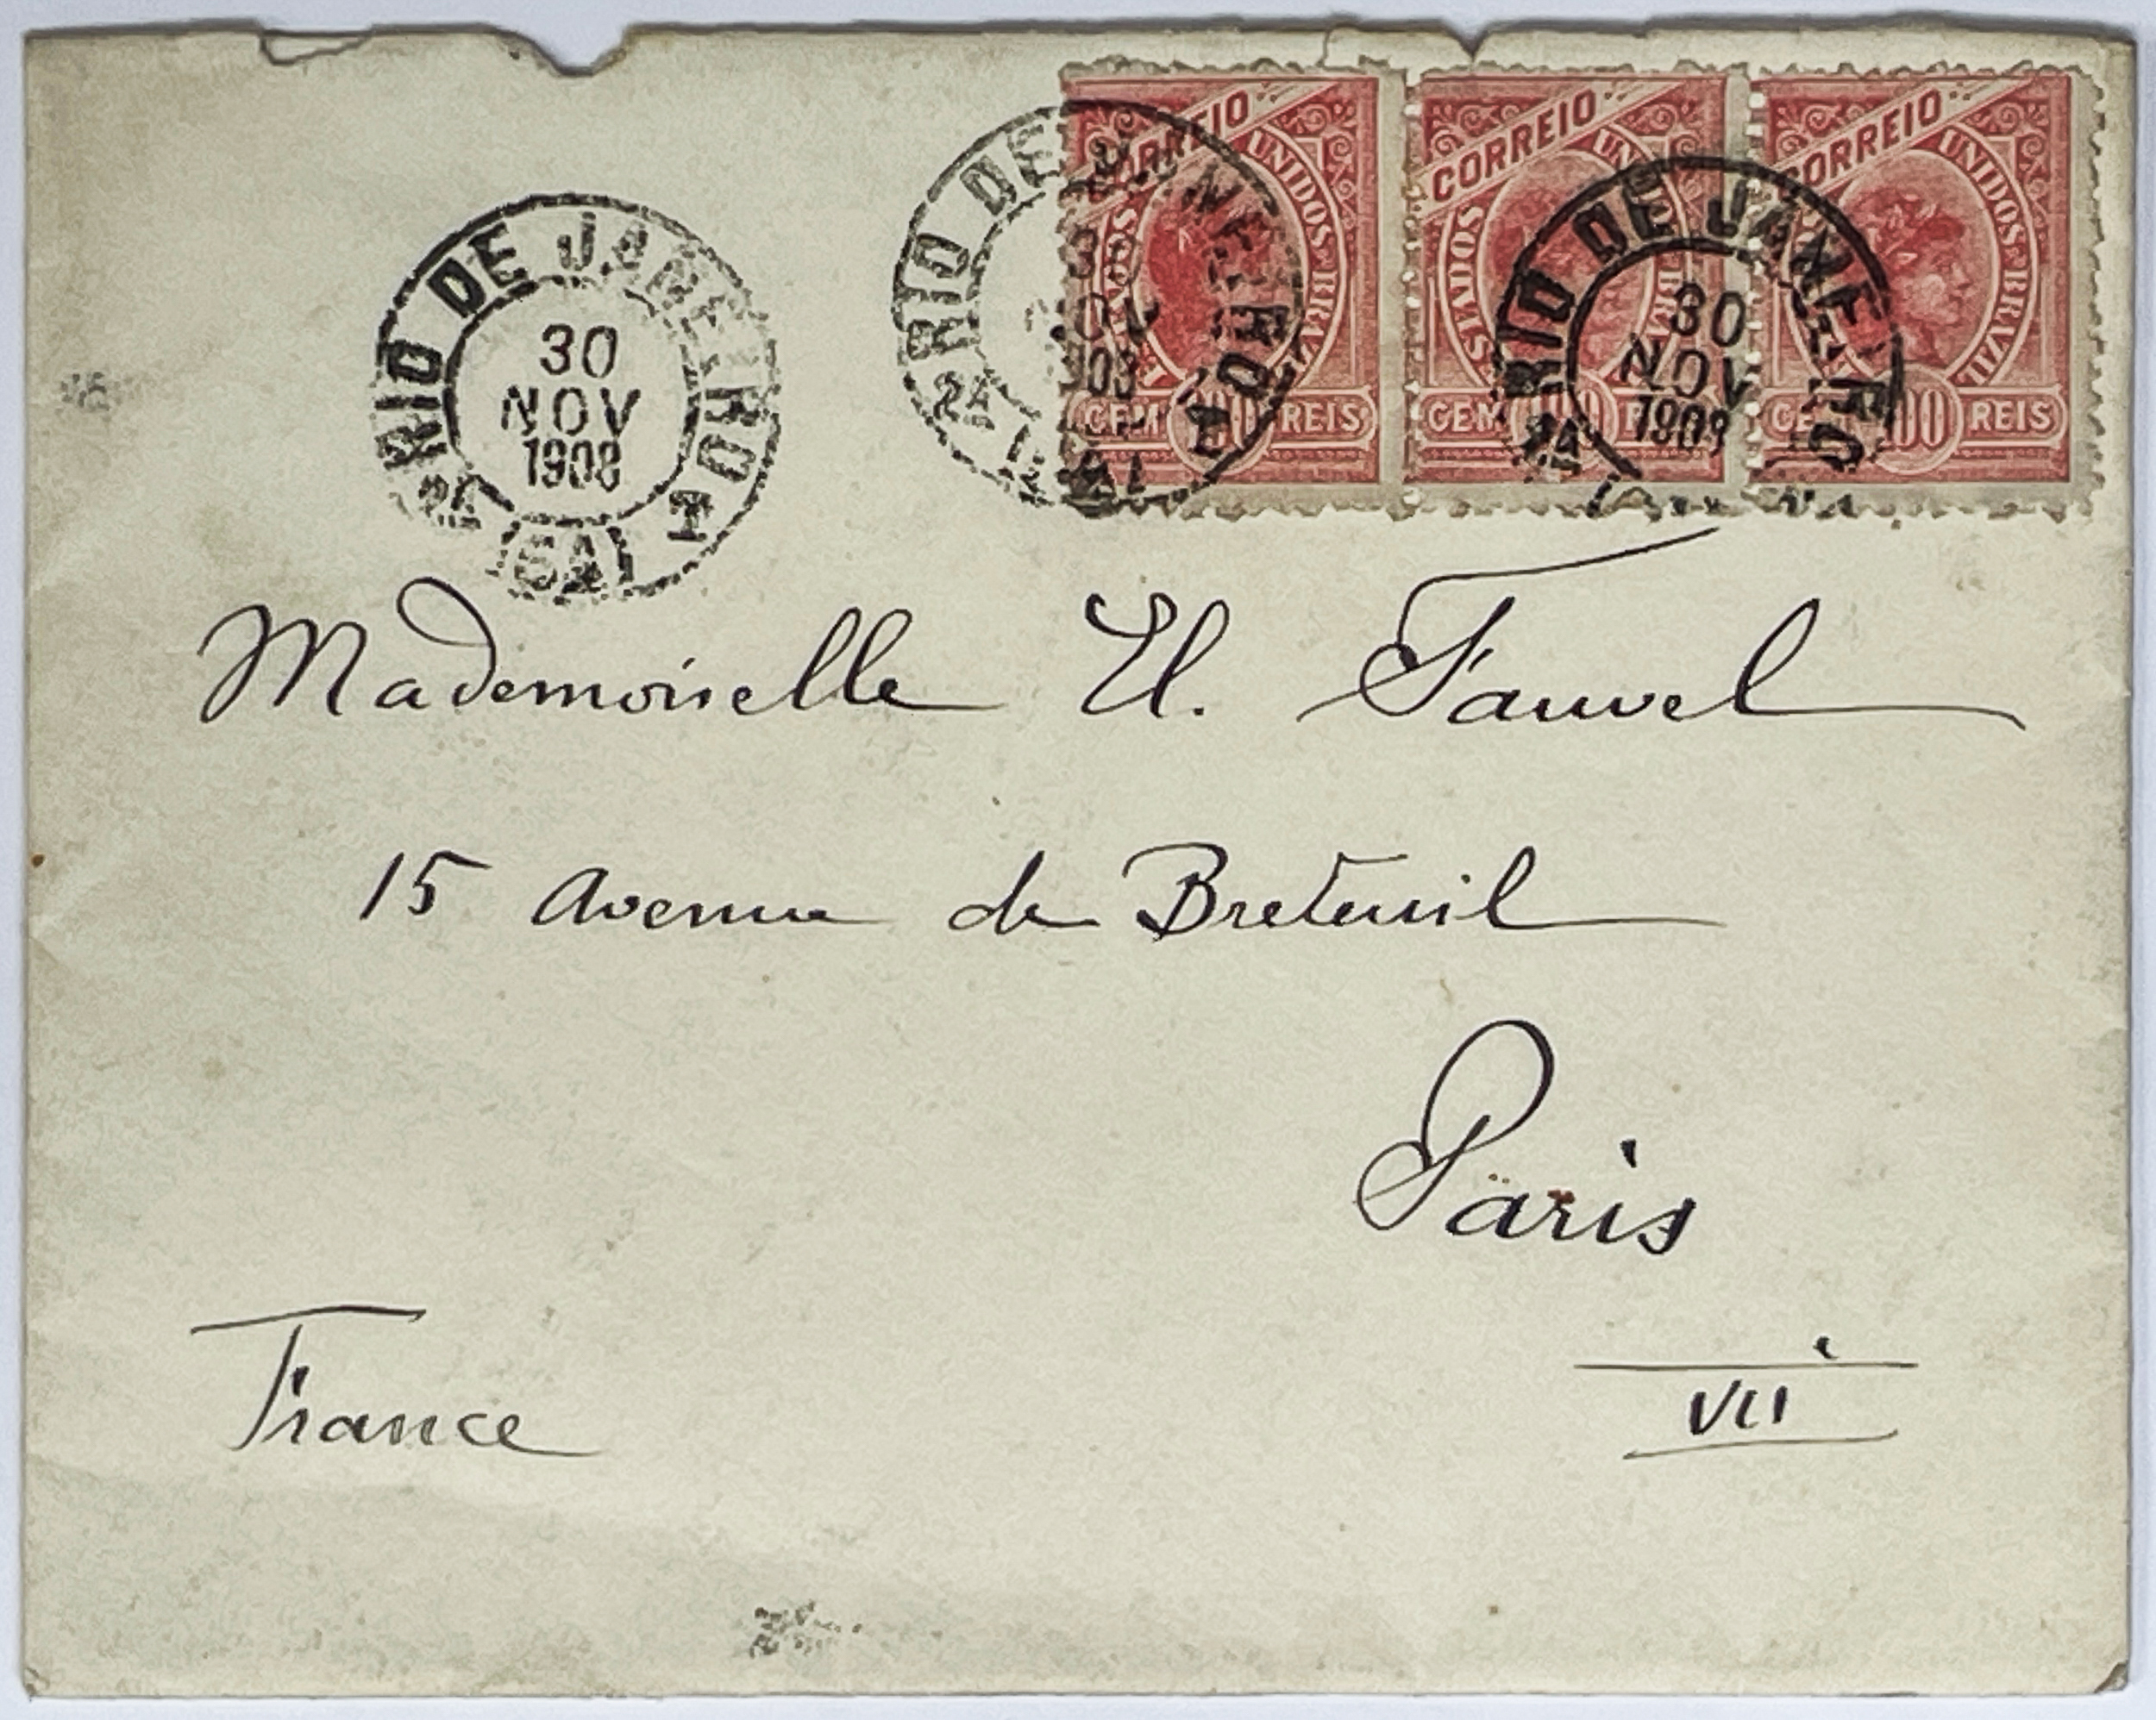 RIO DE JANEIRO
30
NOV
1908
RIO DE JANEIRO
30
NOV
RIO DE JANEIRO
30
NOV
CORREIO
ESTADOS UNIDOS BRAZIL
CEM 100 REIS
CORREIO
ESTADOS UNIDOS BRAZIL
CEM 100 REIS
CORREIO
UNIDOS BRAZIL
100 REIS
Mademoiselle El. Fauvel
15 Avenue de Breteuil
Paris
VII
France